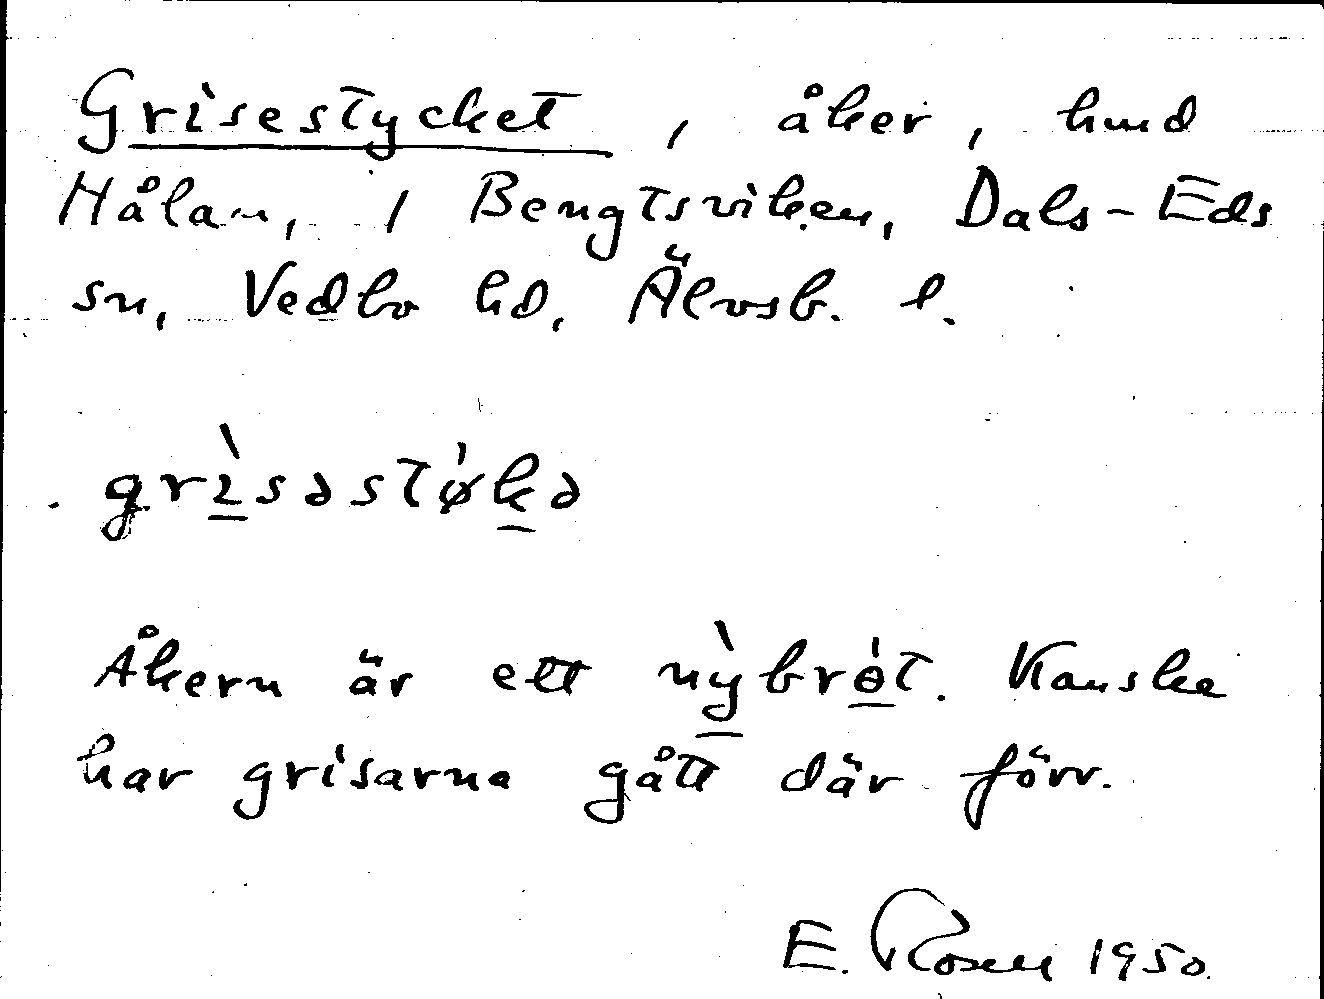 Grisestycket, åker, hmd
Hålan, 1 Bengtsviken, Dals-Eds
sn, Vedbo hd, Älvsb. l.
grìsəstø̍kə
Åkern är ett nỳbrө̍t. Kanske
har grisarna gått där förr.
E. Rosell 1950.